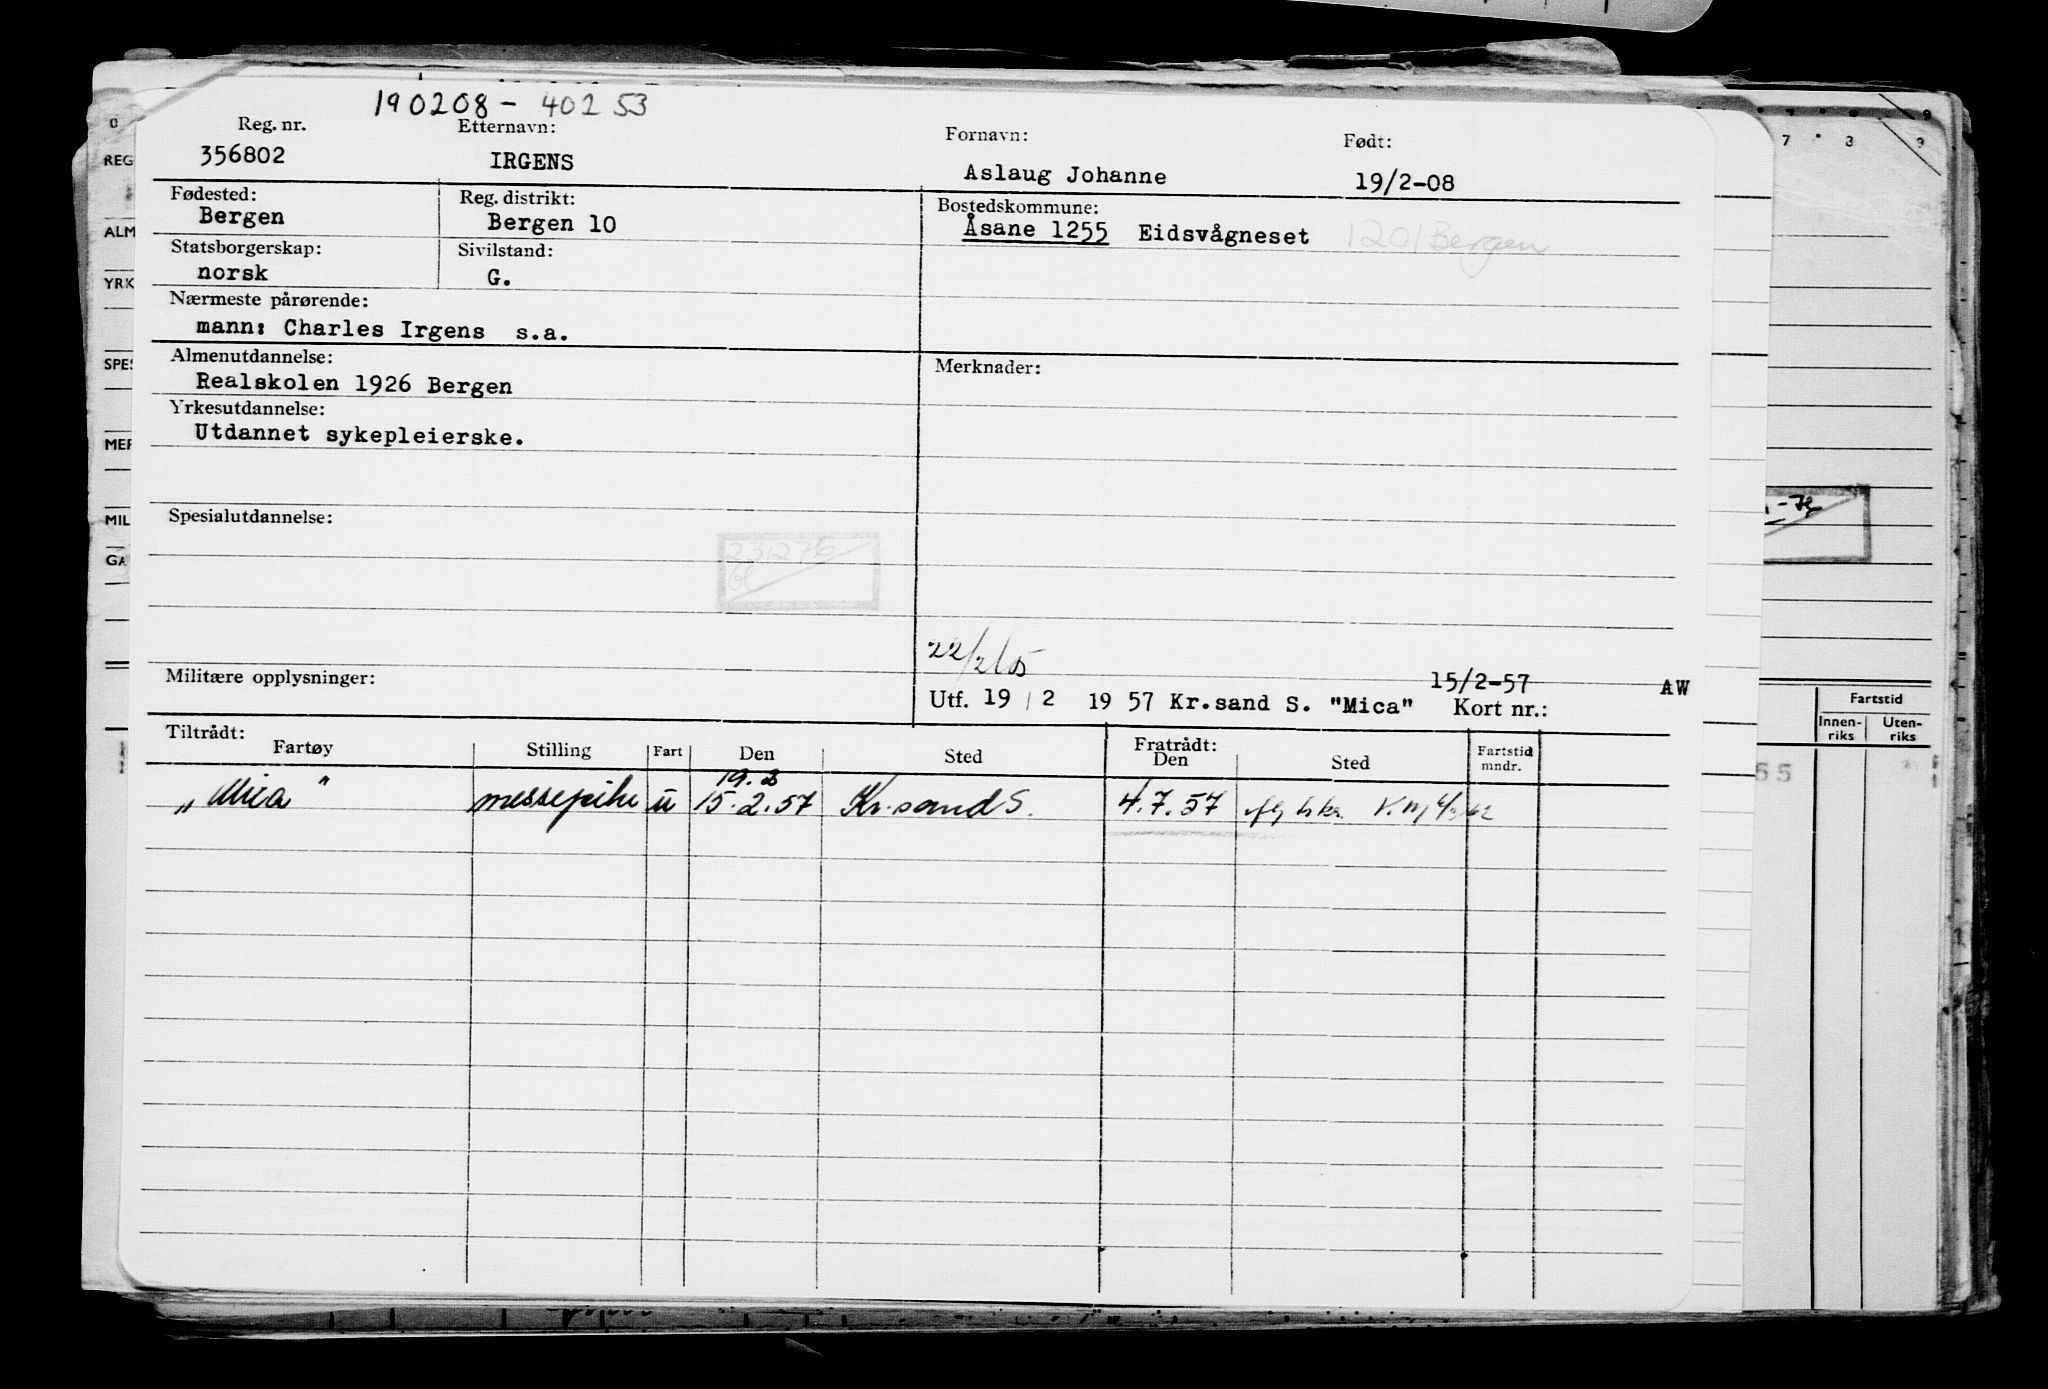 190208 - 40253
Reg. nr. Etternavn: Fornavn: Født:
356802 IRGENS Aslaug Johanne 19/2-08
Fødested: Reg. distrikt: Bostedskommune:
Bergen Bergen 10 Åsane 1255 Eidsvågneset 1201 Bergen
Statsborgerskap: Sivilstand:
norsk G.
Nærmeste pårørende:
mann: Charles Irgens s.a.
Almenutdannelse: Merknader:
Realskolen 1926 Bergen
Yrkesutdannelse:
Utdannet sykepleierske.
Spesialutdannelse:
231276
Militære opplysninger:
15/2-57 AW
Utf. 19 / 2 19 57 Kr.sand S. "Mica" Kort nr.:
Tiltrådt: Fratrådt:
Fartøy Stilling Fart Den Sted Den Sted Fartstid mndr.
19.2
„Mica" messepike u 15.2.57 Kr.sand S. 4.7.57
REG
ALM
YRK
SPES
MER
MIL
GA
7 3 9
Fartstid
Innen-riks Uten-riks
55